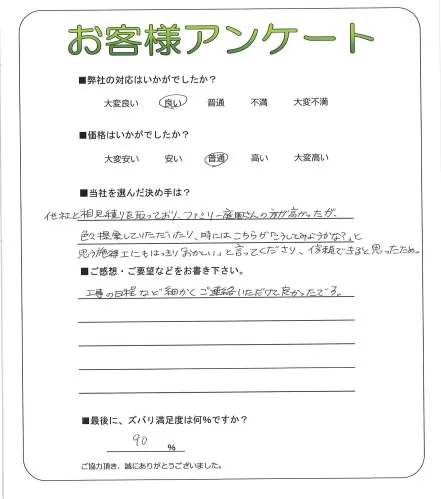 お客様アンケート
■弊社の対応はいかがでしたか?
大変良い 良い 普通 不満 大変不満
■価格はいかがでしたか?
大変安い 安い 普通 高い 大変高い
■当社を選んだ決め手は?
他社と相見積りを取っており、ファミリー産業さんの方が高かったが、
色々提案していただいたり、時にはこちらが「こうしてみようかな?」と
思う施工にもはっきり「おかしい」と言ってくださり、信頼できると思ったため。
■ご感想・ご要望などをお書き下さい。
工事の日程など細かくご連絡いただけて良かったです。
■最後に、ズバリ満足度は何%ですか?
90 %
ご協力頂き、誠にありがとうございました。